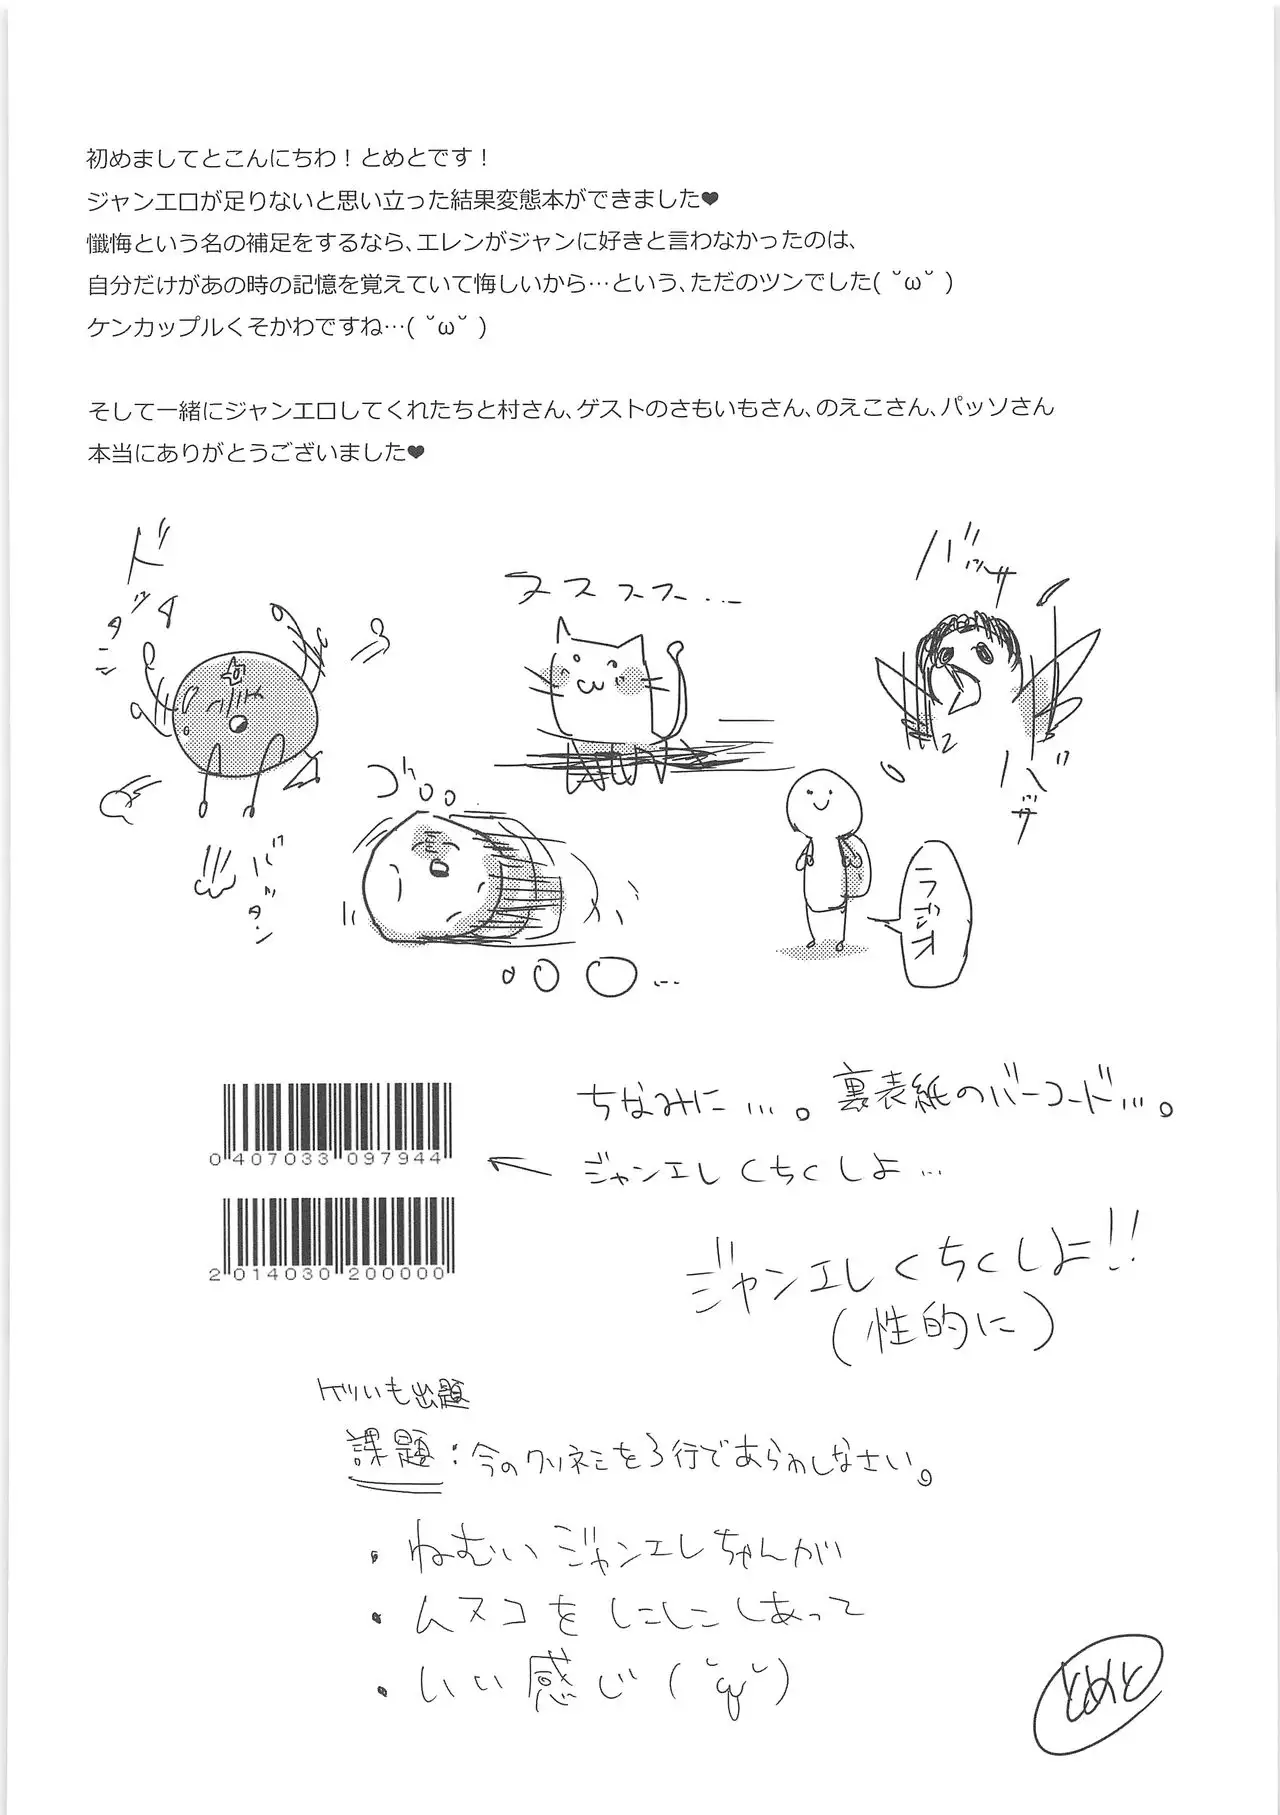 初めましてとこんにちわ！とめとです！
ジャンエロが足りないと思い立った結果変態本ができました♥
懺悔という名の補足をするなら、エレンがジャンに好きと言わなかったのは、
自分だけがあの時の記憶を覚えていて悔しいから…という、ただのツンでした( ˘ω˘ )
ケンカップルくそかわですね…( ˘ω˘ )
そして一緒にジャンエロしてくれたちと村さん、ゲストのさもいもさん、のえこさん、パッソさん
本当にありがとうございました♥
ド
ヌスススス...
バッサ
バサ
ゴロロ
バタン
ラジオ
ちなみに…。裏表紙のバーコード…。
0 407033 097944
ジャンエレくちくしよ…
2 014030 200000
ジャンエレくちくしよ!!
(性的に)
いも出題
課題：今のクソネミを3行であらわしなさい。
・ねむいジャンエレちゃんが
・ムスコをしこしこしあって
・いい感じ(˘q˘)
とめと